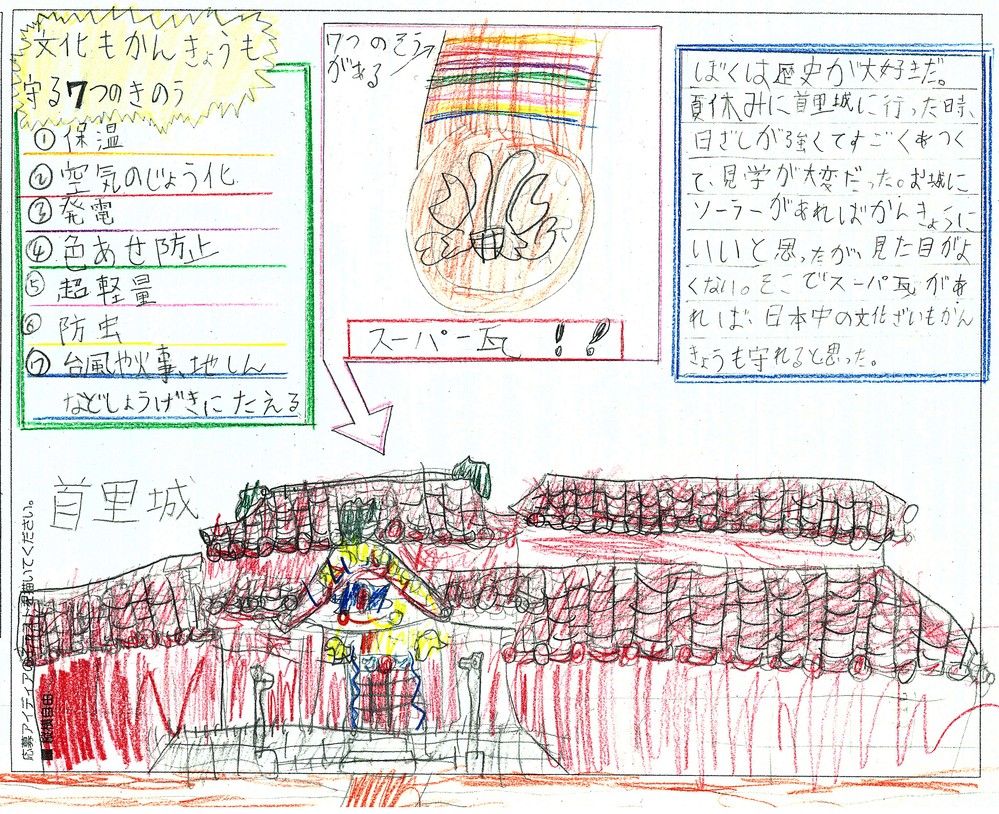 文化もかんきょうも
守る7つのきのう
①保温
②空気のじょう化
③発電
④色あせ防止
⑤超軽量
⑥防虫
⑦台風や火事、地しん
などしょうげきにたえる
7つのそう
がある
スーパー瓦!!
ぼくは歴史が大好きだ。
夏休みに首里城に行った時、
日ざしが強くてすごくあつく
て、見学が大変だった。お城に
ソーラーがあればかんきょうに
いいと思ったが、見た目がよ
くない。そこでスーパ瓦があ
れば、日本中の文化ざいもかん
きょうも守れると思った。
首里城